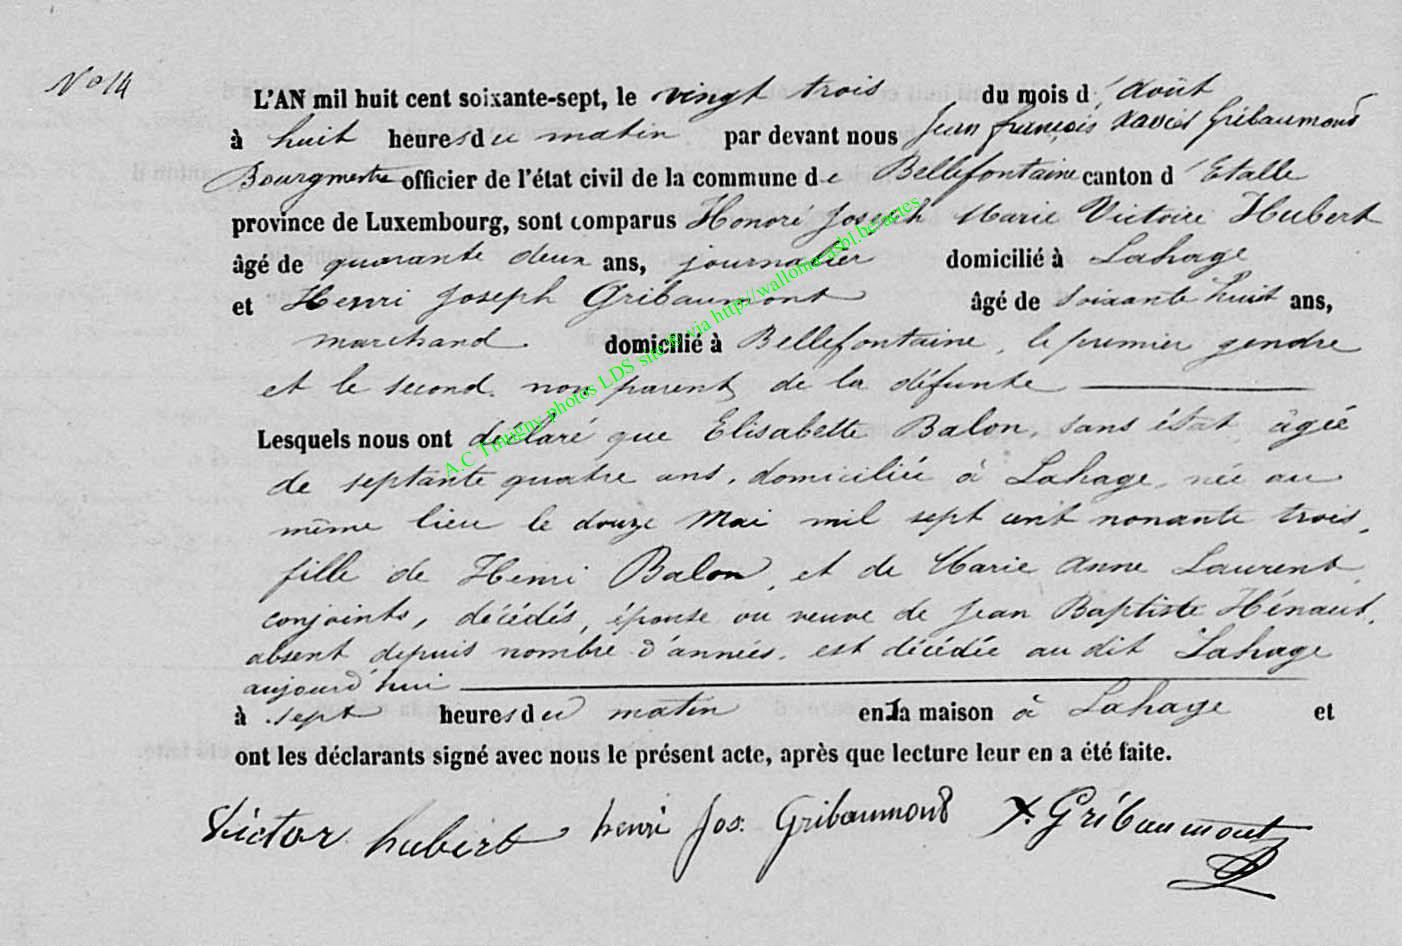 N° 14
L'AN mil huit cent soixante-sept, le vingt trois du mois d'Août
à huit heures du matin par devant nous Jean françois Xavier Gribaumont
Bourgmestre officier de l'état civil de la commune de Bellefontaine canton d'Etalle
province de Luxembourg, sont comparus Honoré Joseph Marie Victoire Hubert
âgé de quarante deux ans, journalier domicilié à Lahage
et Henri Joseph Gribaumont âgé de soixante huit ans,
marchand domicilié à Bellefontaine, le premier gendre
et le second non parent de la défunte
Lesquels nous ont déclaré que Elisabette Balon, sans état, âgée
de septante quatre ans, domiciliée à Lahage, née au
même lieu le douze Mai mil sept cent nonante trois,
fille de Henri Balon, et de Marie Anne Laurent,
conjoints, décédés, épouse ou veuve de Jean Baptiste Hénaut,
absent depuis nombre d'années, est décédée au dit Lahage
aujourd'hui
à sept heures du matin en la maison à Lahage et
ont les déclarants signé avec nous le présent acte, après que lecture leur en a été faite.
Victor hubert henri Jos. Gribaumont X. Gribaumont
A.C Tintigny photos LDS site via http://wallonia.asbl.be/actes